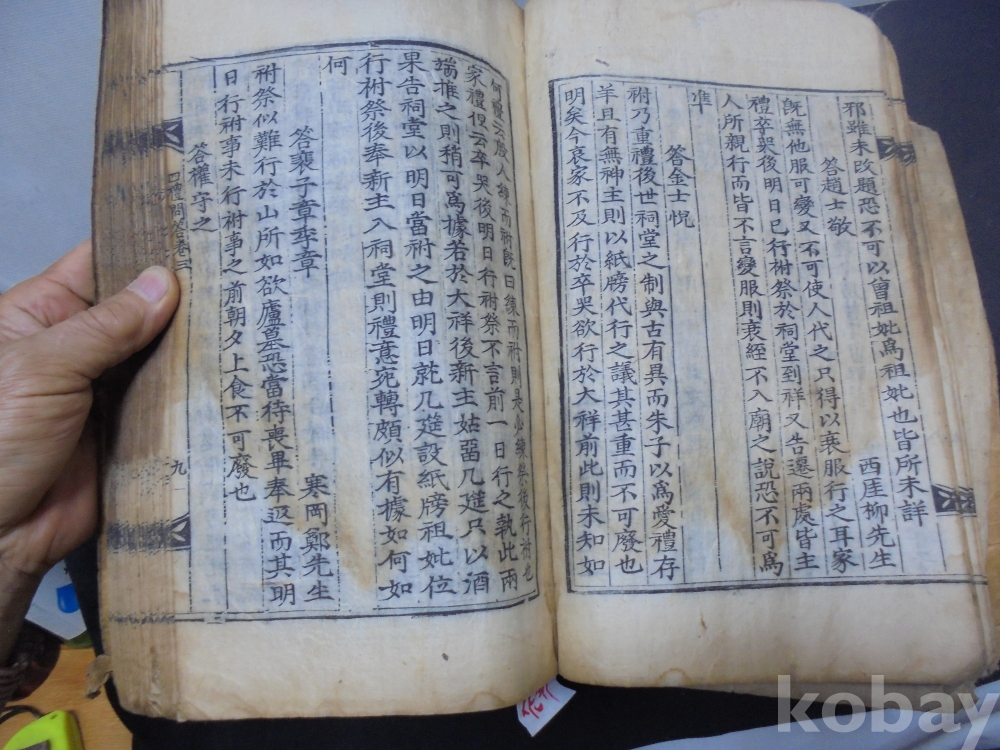 邪雖未改題恐不可以曾祖妣爲祖妣也皆所未詳
答趙士敬　西厓柳先生
旣無他服可變又不可使人代之只得以衰服行之耳家
禮卒哭後明日已行祔祭於祠堂到祥又告遷兩處皆主
人所親行而皆不言變服則衰絰不入廟之說恐不可爲
準
答金士悅
祔乃重禮後世祠堂之制與古有異而朱子以爲愛禮存
羊且有無神主則以紙牓代行之議其甚重而不可廢也
明矣今哀家不及行於卒哭欲行於大祥前此則未知如
何禮云殷人練而祔旣曰練而祔則是必練祭後行祔也
家禮但云卒哭後明日行祔祭不言前一日行之執此兩
端推之則稍可爲據若於大祥後新主姑留几筵只以酒
果告祠堂以明日當祔之由明日就几筵設紙牓祖妣位
行祔祭後奉新主入祠堂則禮意宛轉頗似有據如何如
何
答裵子章季章　寒岡鄭先生
祔祭似難行於山所如欲廬墓恐當待喪畢奉返而其明
日行祔事未行祔事之前朝夕上食不可廢也
答權守之
禮問答卷三
九
kobay